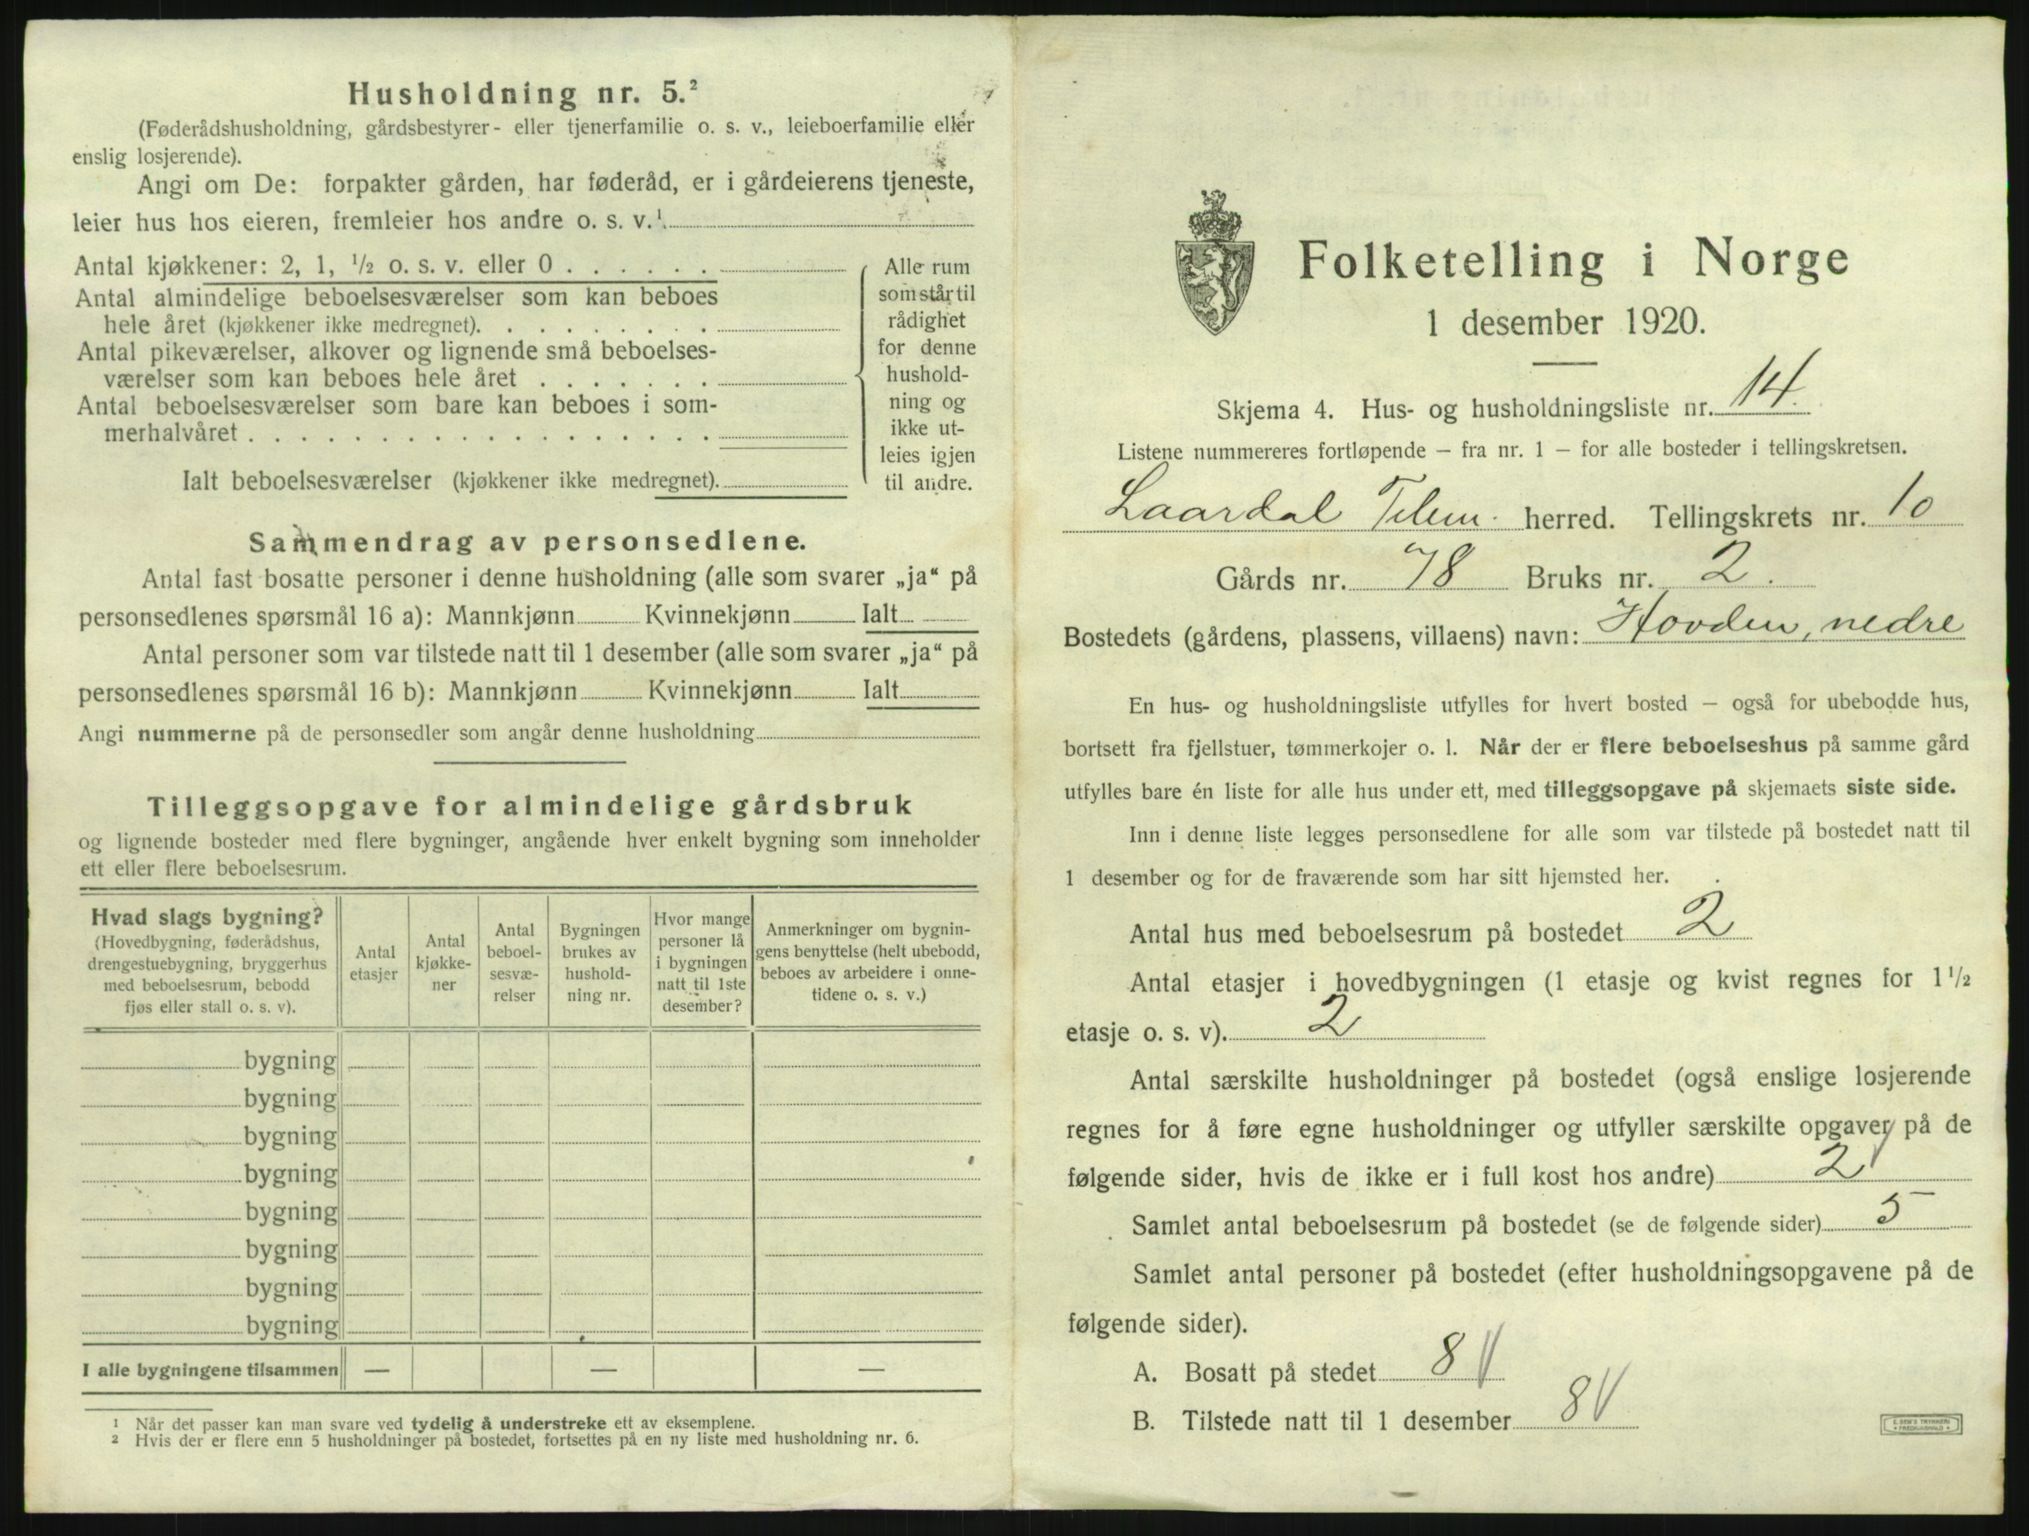 Husholdning nr. 5.²
(Føderådshusholdning, gårdsbestyrer- eller tjenerfamilie o. s. v., leieboerfamilie eller
enslig losjerende).
Angi om De: forpakter gården, har føderåd, er i gårdeierens tjeneste,
leier hus hos eieren, fremleier hos andre o. s. v.¹
Antal kjøkkener: 2, 1, ½ o. s. v. eller 0 . . . . . .
Antal almindelige beboelsesværelser som kan beboes
hele året (kjøkkener ikke medregnet). . . . . . . . .
Antal pikeværelser, alkover og lignende små beboelses-
værelser som kan beboes hele året . . . . . . .
Antal beboelsesværelser som bare kan beboes i som-
merhalvåret . . . . . . . . . . . . . . . . . .
Ialt beboelsesværelser (kjøkkener ikke medregnet).
Alle rum
som står til
rådighet
for denne
hushold-
ning og
ikke ut-
leies igjen
til andre.
Sammendrag av personsedlene.
Antal fast bosatte personer i denne husholdning (alle som svarer „ja“ på
personsedlenes spørsmål 16 a): Mannkjønn Kvinnekjønn Ialt
Antal personer som var tilstede natt til 1 desember (alle som svarer „ja“ på
personsedlenes spørsmål 16 b): Mannkjønn Kvinnekjønn Ialt
Angi nummerne på de personsedler som angår denne husholdning
Tilleggsopgave for almindelige gårdsbruk
og lignende bosteder med flere bygninger, angående hver enkelt bygning som inneholder
ett eller flere beboelsesrum.
Hvad slags bygning?
(Hovedbygning, føderådshus,
drengestuebygning, bryggerhus
med beboelsesrum, bebodd
fjøs eller stall o. s. v).
Antal
etasjer
Antal
kjøkke-
ner
Antal
beboel-
sesvæ-
relser
Bygningen
brukes av
hushold-
ning nr.
Hvor mange
personer lå
i bygningen
natt til 1ste
desember?
Anmerkninger om bygnin-
gens benyttelse (helt ubebodd,
beboes av arbeidere i onne-
tidene o. s. v.)
bygning
bygning
bygning
bygning
bygning
bygning
bygning
bygning
I alle bygningene tilsammen — — —
¹ Når det passer kan man svare ved tydelig å understreke ett av eksemplene.
² Hvis der er flere enn 5 husholdninger på bostedet, fortsettes på en ny liste med husholdning nr. 6.
Folketelling i Norge
1 desember 1920.
Skjema 4. Hus- og husholdningsliste nr. 14.
Listene nummereres fortløpende – fra nr. 1 – for alle bosteder i tellingskretsen.
Laardal Telem. herred. Tellingskrets nr. 10
Gårds nr. 78 Bruks nr. 2.
Bostedets (gårdens, plassens, villaens) navn: Hovden, nedre
En hus- og husholdningsliste utfylles for hvert bosted – også for ubebodde hus,
bortsett fra fjellstuer, tømmerkojer o. l. Når der er flere beboelseshus på samme gård
utfylles bare én liste for alle hus under ett, med tilleggsopgave på skjemaets siste side.
Inn i denne liste legges personsedlene for alle som var tilstede på bostedet natt til
1 desember og for de fraværende som har sitt hjemsted her.
Antal hus med beboelsesrum på bostedet 2
Antal etasjer i hovedbygningen (1 etasje og kvist regnes for 1½
etasje o. s. v). 2
Antal særskilte husholdninger på bostedet (også enslige losjerende
regnes for å føre egne husholdninger og utfyller særskilte opgaver på de
følgende sider, hvis de ikke er i full kost hos andre) 2
Samlet antal beboelsesrum på bostedet (se de følgende sider) 5
Samlet antal personer på bostedet (efter husholdningsopgavene på de
følgende sider).
A. Bosatt på stedet 8
B. Tilstede natt til 1 desember 8